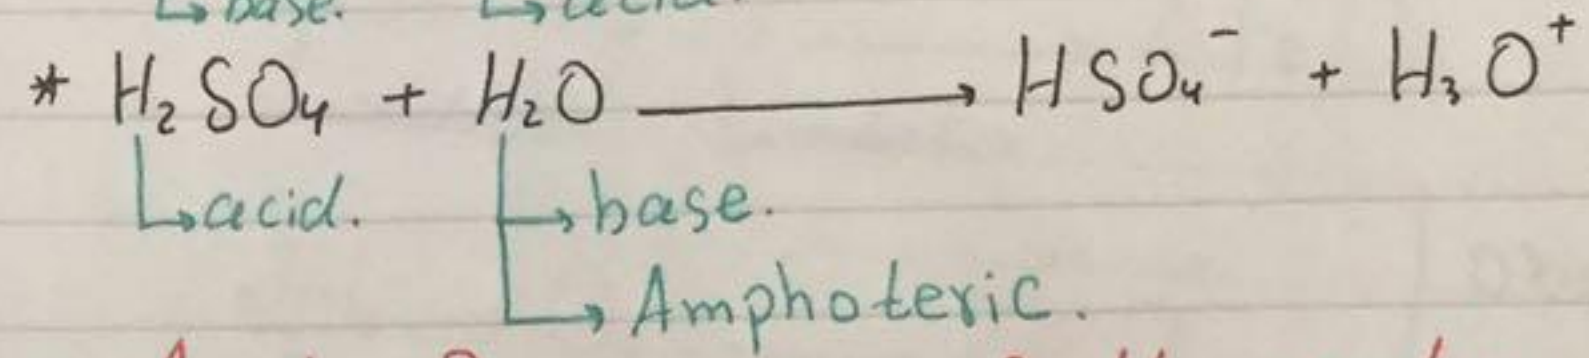 ↳ base. ↳ acid.
* H₂SO₄ + H₂O ⟶ HSO₄⁻ + H₃O⁺
↳ acid. ↳ base.
↳ Amphoteric.